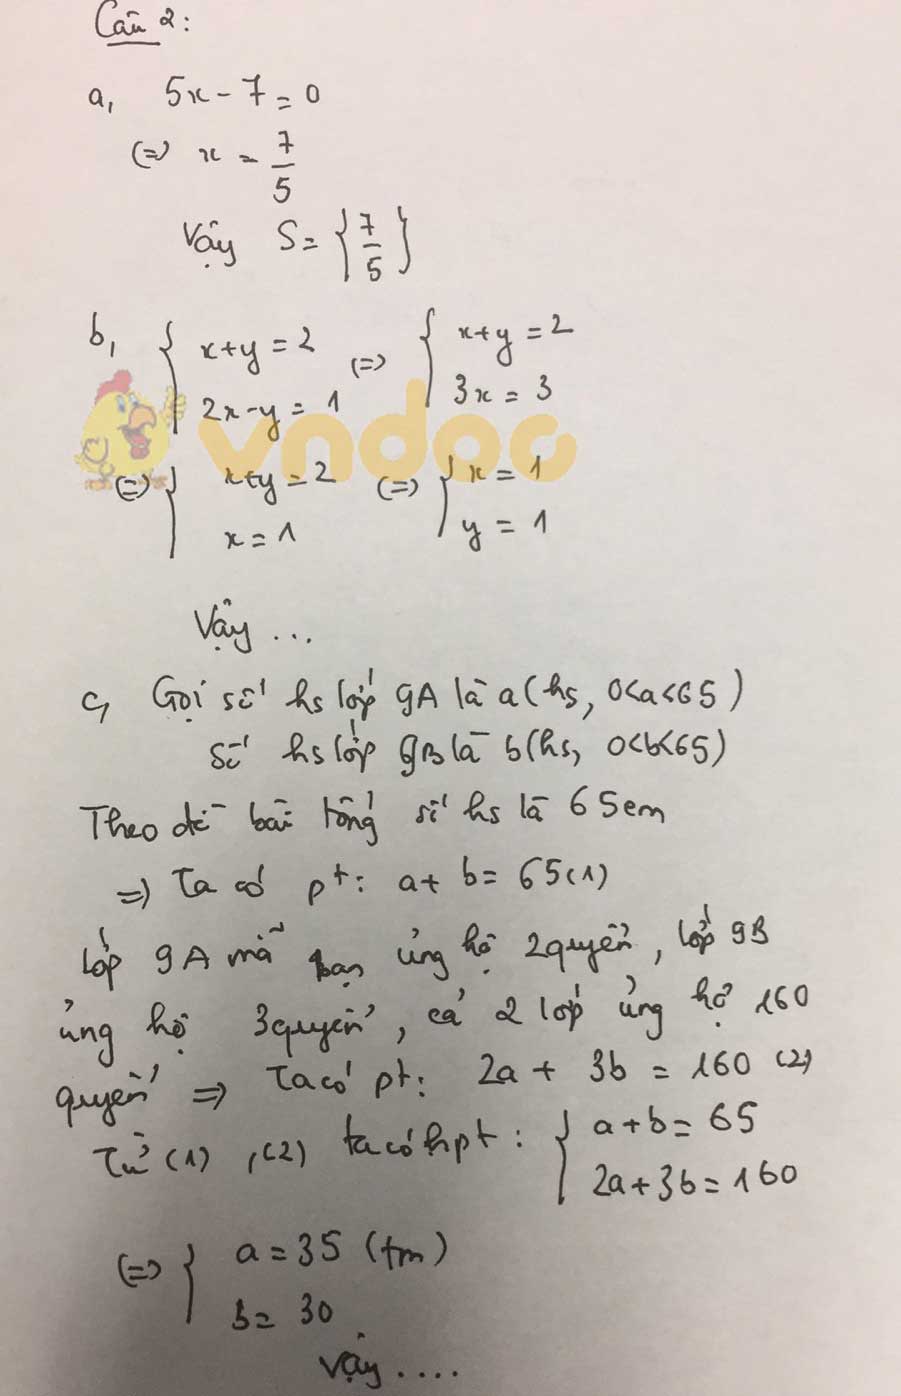 Câu 2:
a, 5x - 7 = 0
(=) x = 7/5
Vậy S = {7/5}
b, { x+y = 2 (=) { x+y = 2
2x-y = 1 3x = 3
vndoc
(=) { x+y = 2 (=) { x = 1
x = 1 y = 1
Vậy ...
c, Gọi số hs lớp 9A là a (hs, 0<a<65)
số hs lớp 9B là b (hs, 0<b<65)
Theo đề bài tổng số hs là 65 em
=) Ta có pt: a + b = 65 (1)
Lớp 9A mỗi bạn ủng hộ 2 quyển, lớp 9B
ủng hộ 3 quyển, cả 2 lớp ủng hộ 160
quyển =) Ta có pt: 2a + 3b = 160 (2)
Từ (1), (2) ta có hpt: { a + b = 65
2a + 3b = 160
(=) { a = 35 (tm)
b = 30
Vậy ....